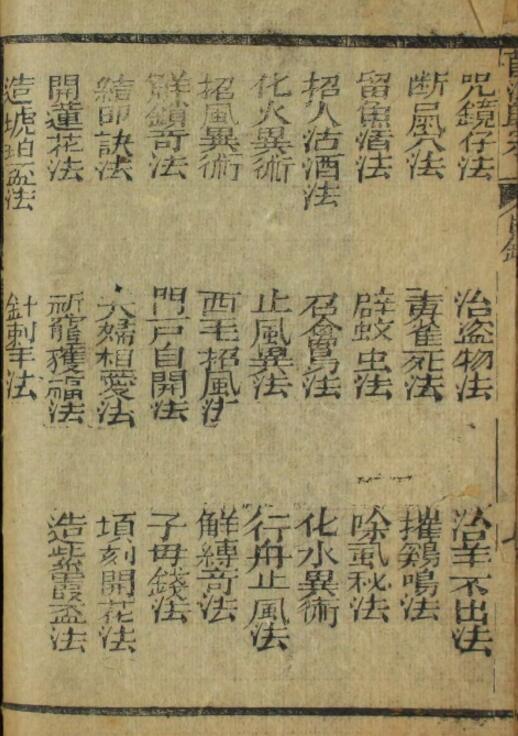 咒鏡仔法　治盜物法　治羊不出法
断　法　毒雀死法　摧鷄鳴法
留魚酒法　辟蚊虫法　除虱秘法
招人沽酒法　召禽法　化水異術
化火異術　止風異法　行舟止風法
招風異術　毛招風法　解縛奇法
解鎖奇法　門戸自開法　子母錢法
結印訣法　夫婦相愛法　頃刻開花法
開蓮花法　祈龍獲福法　造紫霞盃法
造琥珀盃法　針刺法